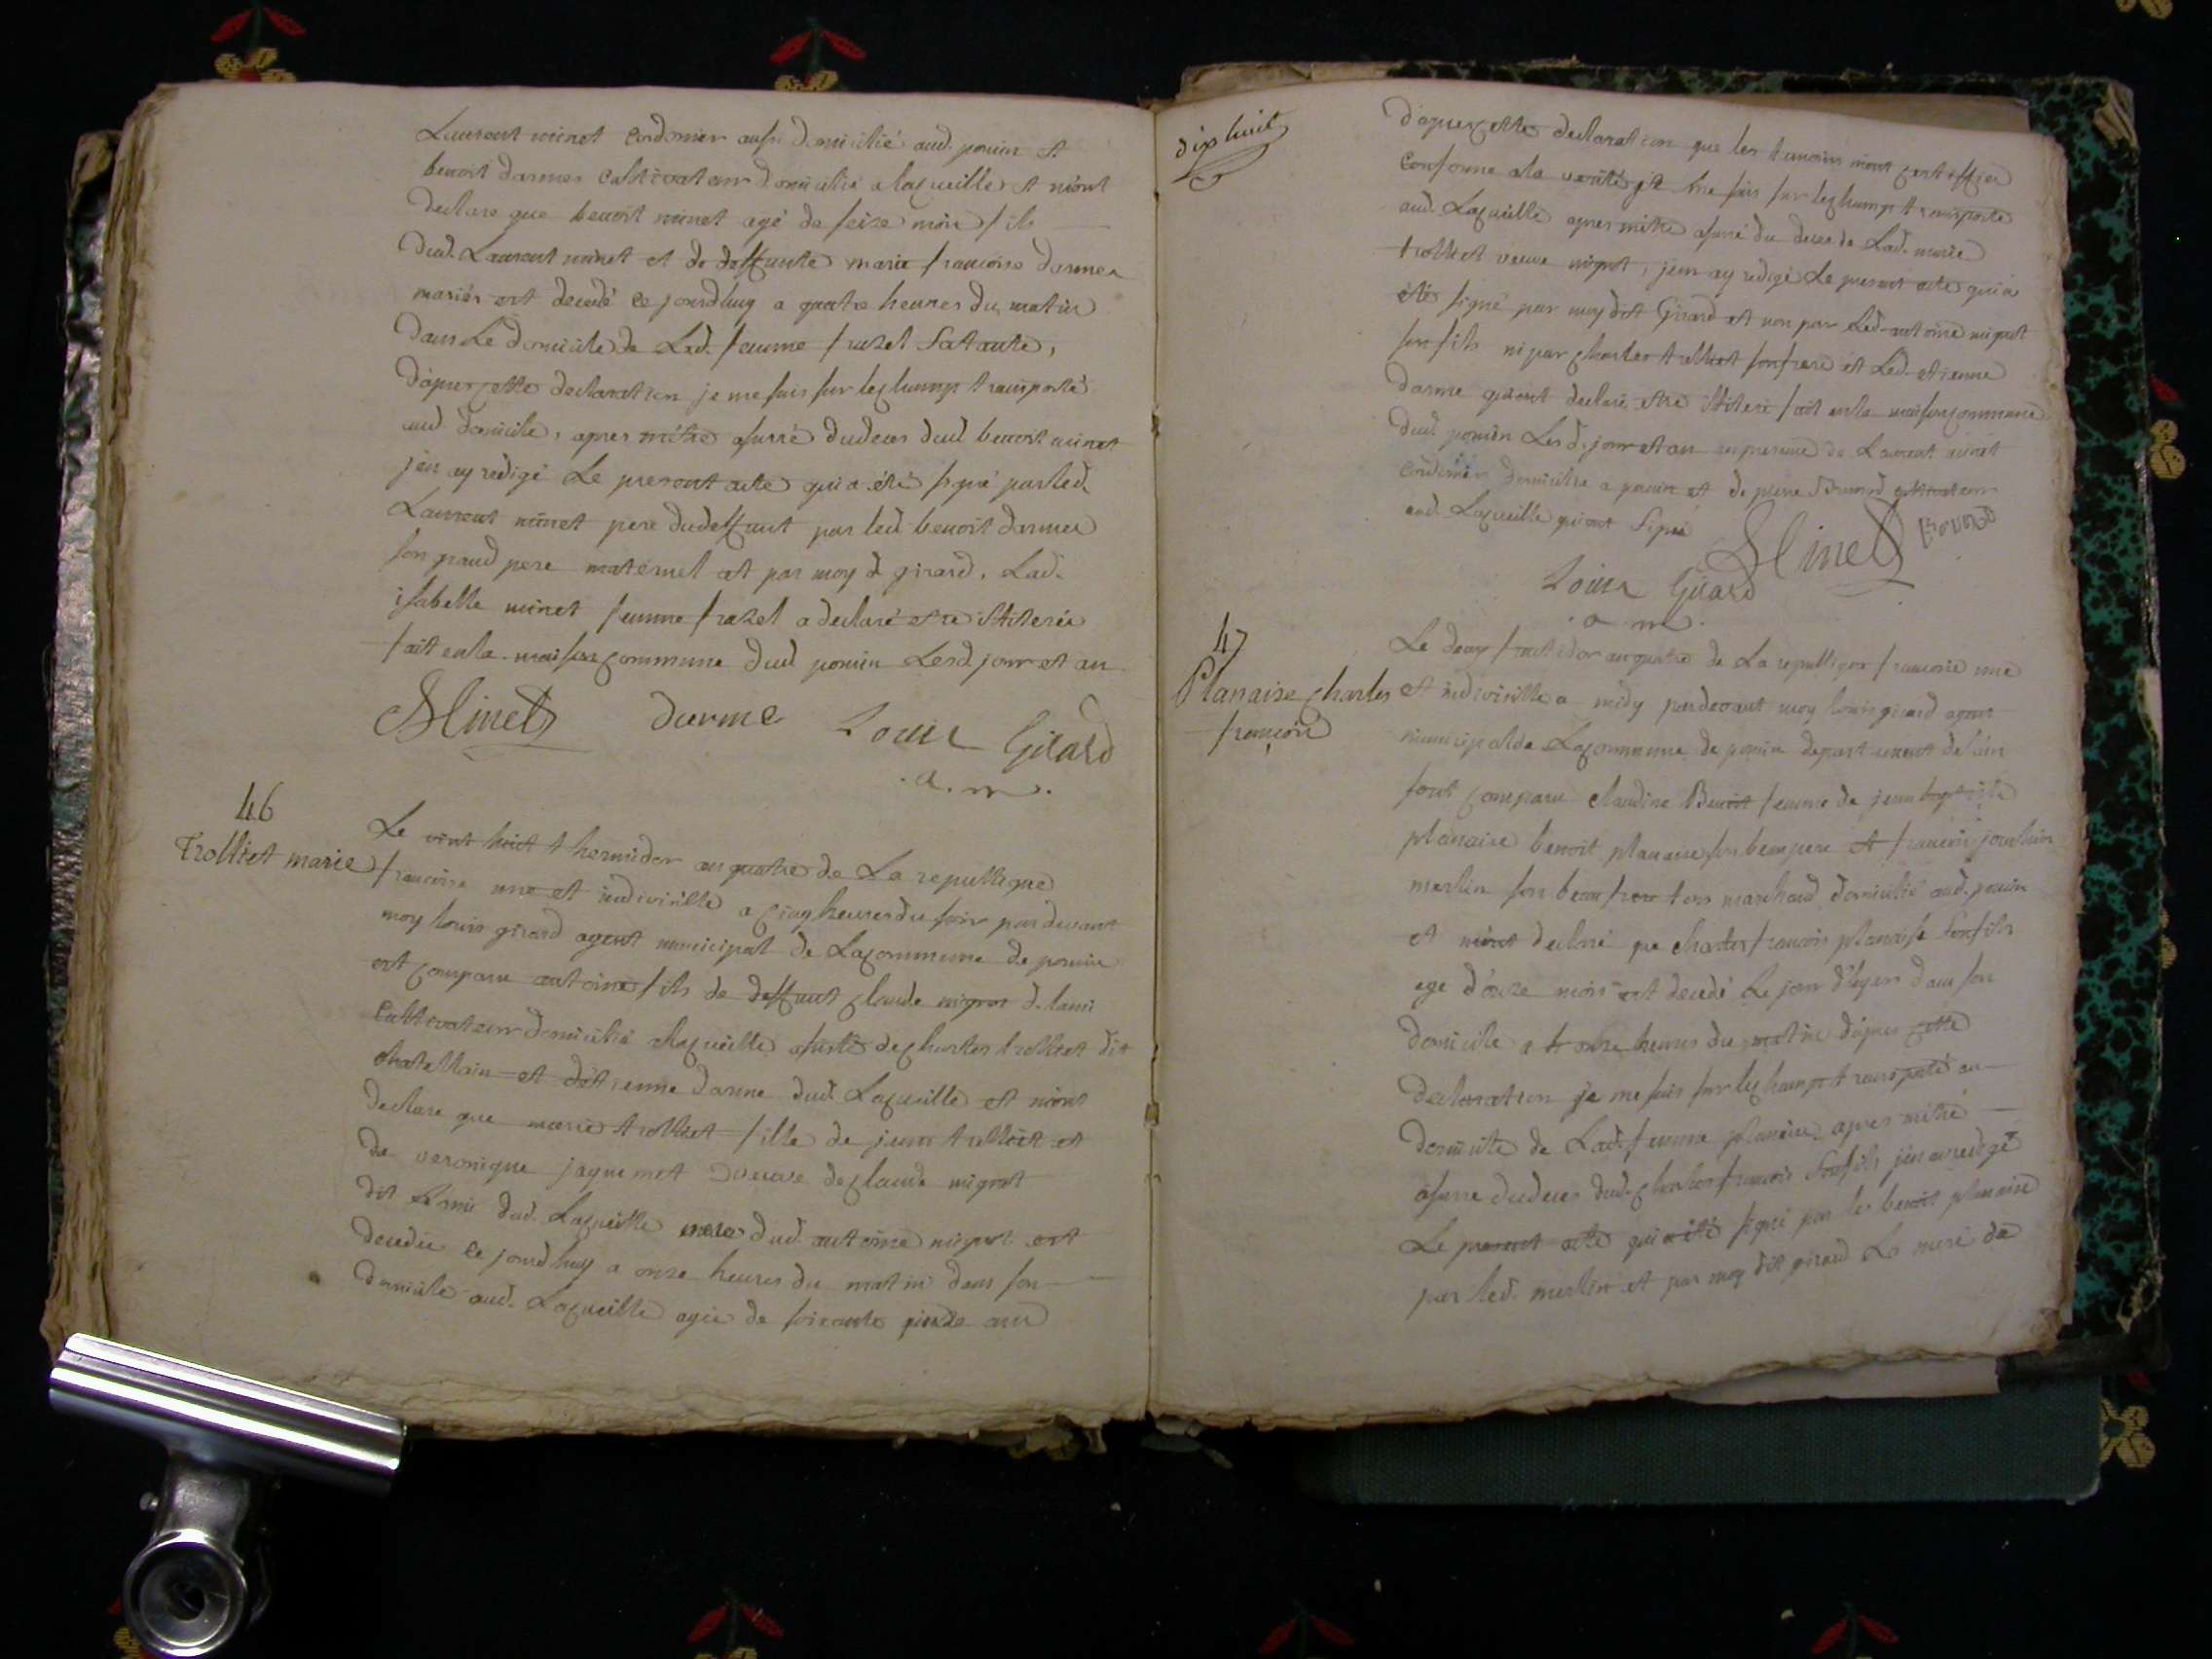 Laurent minet Cordonier aussi domicilié aud. poncin et
benoit darmes Cultivateur domicilié alaqueille et m'ont
declare que benoit minet agé de seize mois fils
dud. Laurent minet et de deffunte marie francoise darmes
mariés est decedé ce jourdhuy a quatre heures du matin
dans Le domicile de Lad. femme frazet Satante,
d'apres cette declaration je me suis sur lechamp transporté
aud domicile, apres m'étre assurré dudeces dud benoit minet
j'en ay redigé Le present acte qui a été signé par led.
Laurent minet pere dudeffunt par led benoit darmes
son grand pere maternel et par moy d girard. Lad.
isabelle minet femme frazet a declaré etre illiterée
fait enla maison commune dud poncin Lesd jour et an
Minet darme Louis Girard
a. m.
46
Trolliet marie
Le vint huit thermidor an quatre de La republique
francoise une et indivisible a cinq heures du soir pardevant
moy Louis girard agent municipal de Lacommune de poncin
est comparu antoine fils de deffunt claude mignot d. lami
Cultivateur domicilié alaqueille assisté de charles trolliet dit
chatellain et d'étienne darme dud. Laqueille et m'ont
declare que marie trolliet fille de jean trolliet et
de veronique jaquemet veuve de claude mignot
dit Lami dud. Laqueille mere dud. antoine mignot est
decedée ce jourdhuy a onze heures du matin dans son
domicile aud. Laqueille agée de soixante ans
dixhuit
d'apres cette declaration que les temoins m'ont certiffiée
Conforme ala verité je me suis sur lechamp transporté
aud. Laqueille apres m'étre assuré du deces de Lad. marie
trolliet veuve mignot, jen ay redigé Le present acte qui a
été signé par moy dit Girard et non par Led. antoine mignot
son fils ni par charles trolliet son frere et Led. etienne
darme qui ont declaré etre illiteré fait enla maison commune
dud. poncin Lesd. jour et an en presence de Laurent minet
Cordonier domicilié a poncin et de piere Bovard cultivateur
aud. Laqueille qui ont Signé
Minet Bovard
Louis Girard
a m.
47
Planaise charles
françois
Le deux fructidor an quatre de La republique francoise une
et indivisible a midy pardevant moy Louis girard agent
municipal de Lacommune de poncin departement de lain
sont comparu claudine Benoit femme de jean baptiste
planaise benoit planaise son beaupere et francois joachim
merlin son beau frere tous marchand domicilié aud. poncin
et m'ont declaré que charles francois planaise Son fils
age d'onze mois est decedé Le jour d'hyer dans son
domicile a onze heures du matin d'apres cette
declaration je me suis sur lechamp transporté au
domicile de Lad. femme planaise apres m'étre
assurre dudeces dud. charles francois Son fils j'en ay redigé
Le present acte qui a été signé par led benoit planaise
par led. merlin et par moy dit girard La mere de